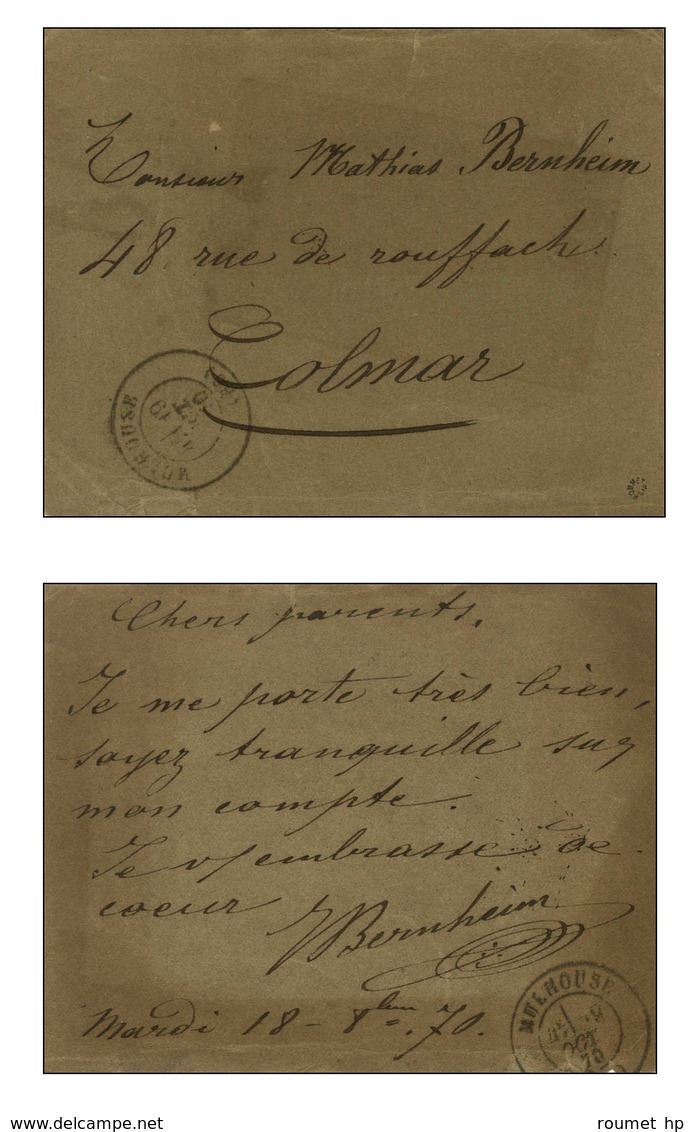 Monsieur Mathias Bernheim
48 rue de rouffach
Colmar
MULHOUSE
Chers parents,
Je me porte très bien,
soyez tranquille sur
mon compte.
Je v/ embrasse de
coeur
Bernheim
Mardi 18 - 8bre. 70.
MULHOUSE
OCT
70
www.delcampe.net
roumet hp